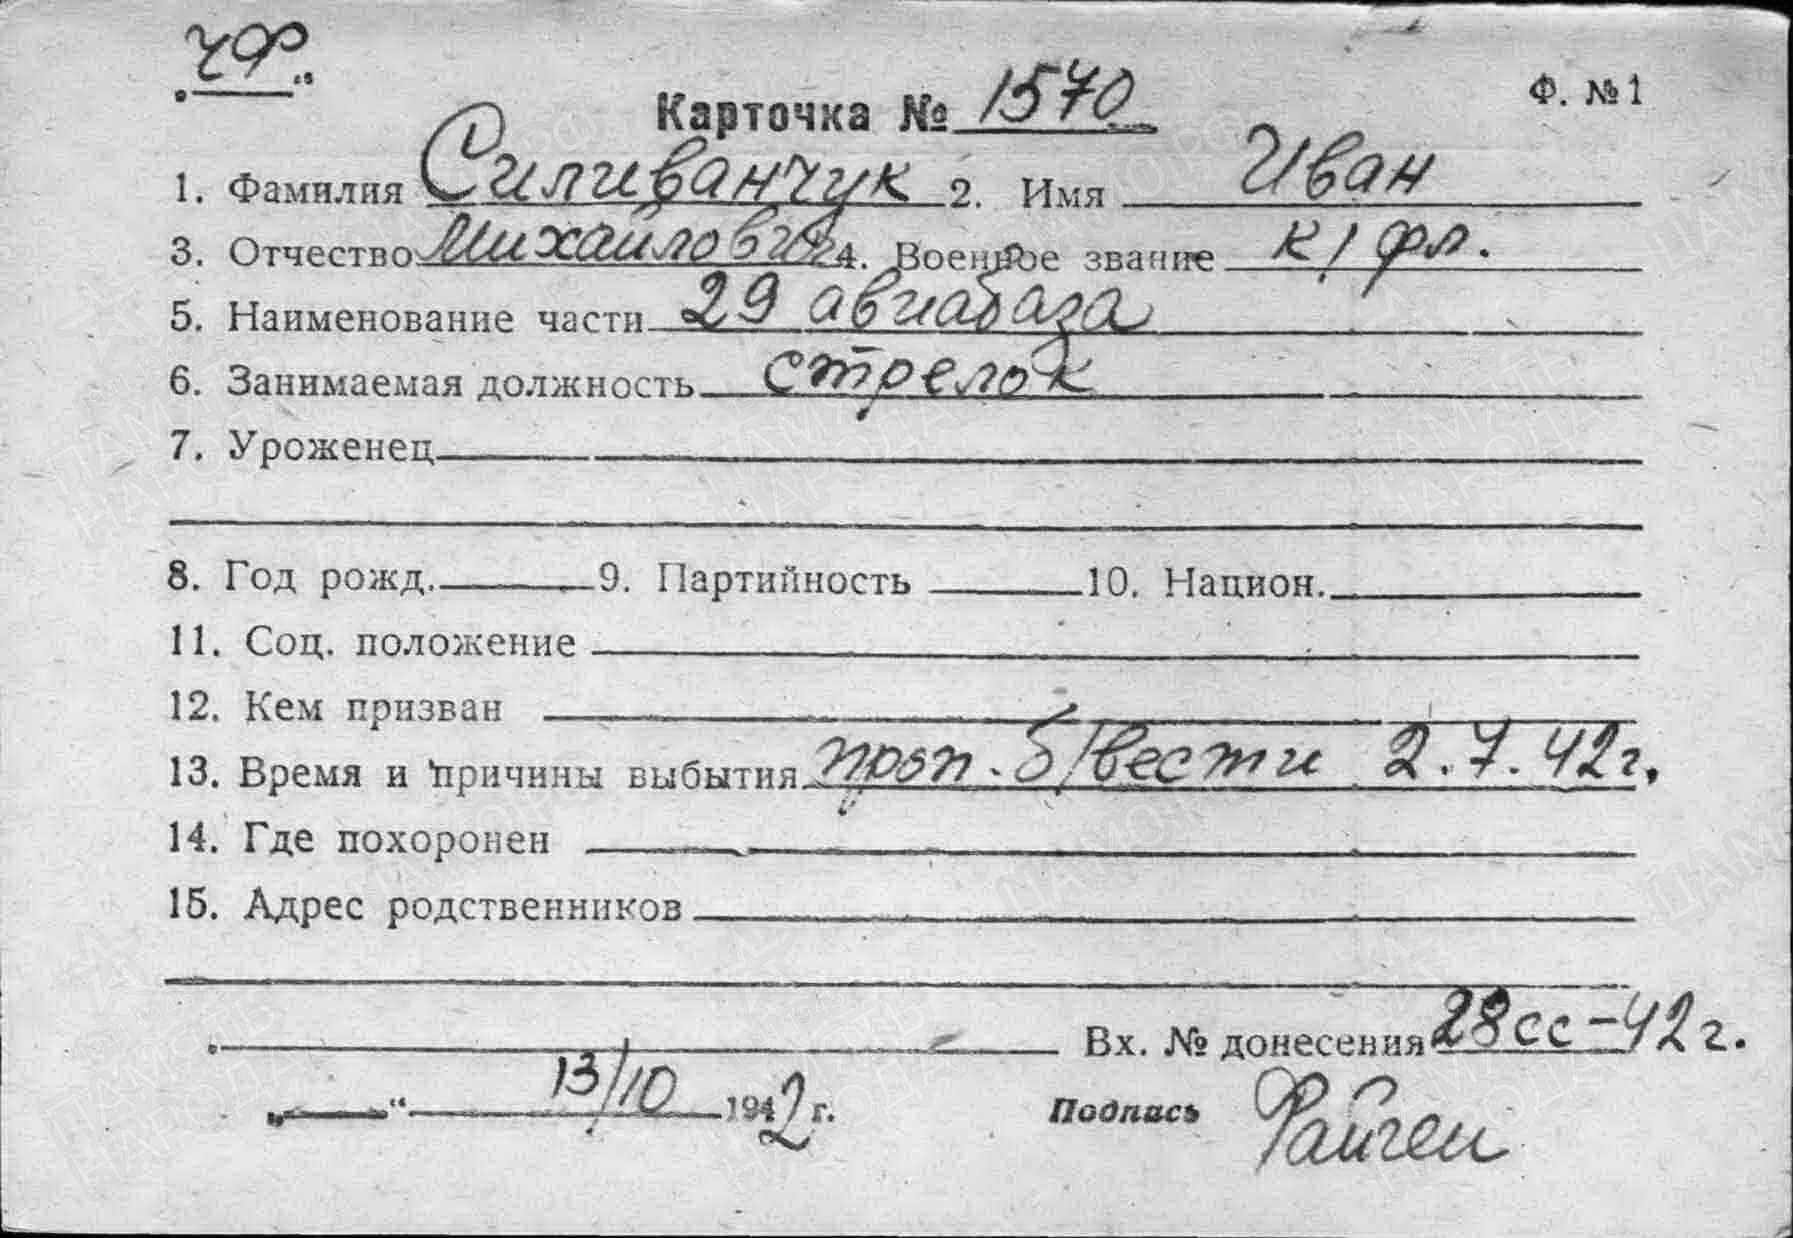 ЧФ.
Карточка № 1570
Ф. № 1
1. Фамилия Силиванчук 2. Имя Иван
3. Отчество Михайлович 4. Военное звание к/фл.
5. Наименование части 29 авиабаза
6. Занимаемая должность стрелок
7. Уроженец
8. Год рожд. 9. Партийность 10. Национ.
11. Соц. положение
12. Кем призван
13. Время и причины выбытия проп. б/вести 2.7.42г.
14. Где похоронен
15. Адрес родственников
Вх. № донесения 28сс-42г.
„ “ 13/10 1942 г. Подпись